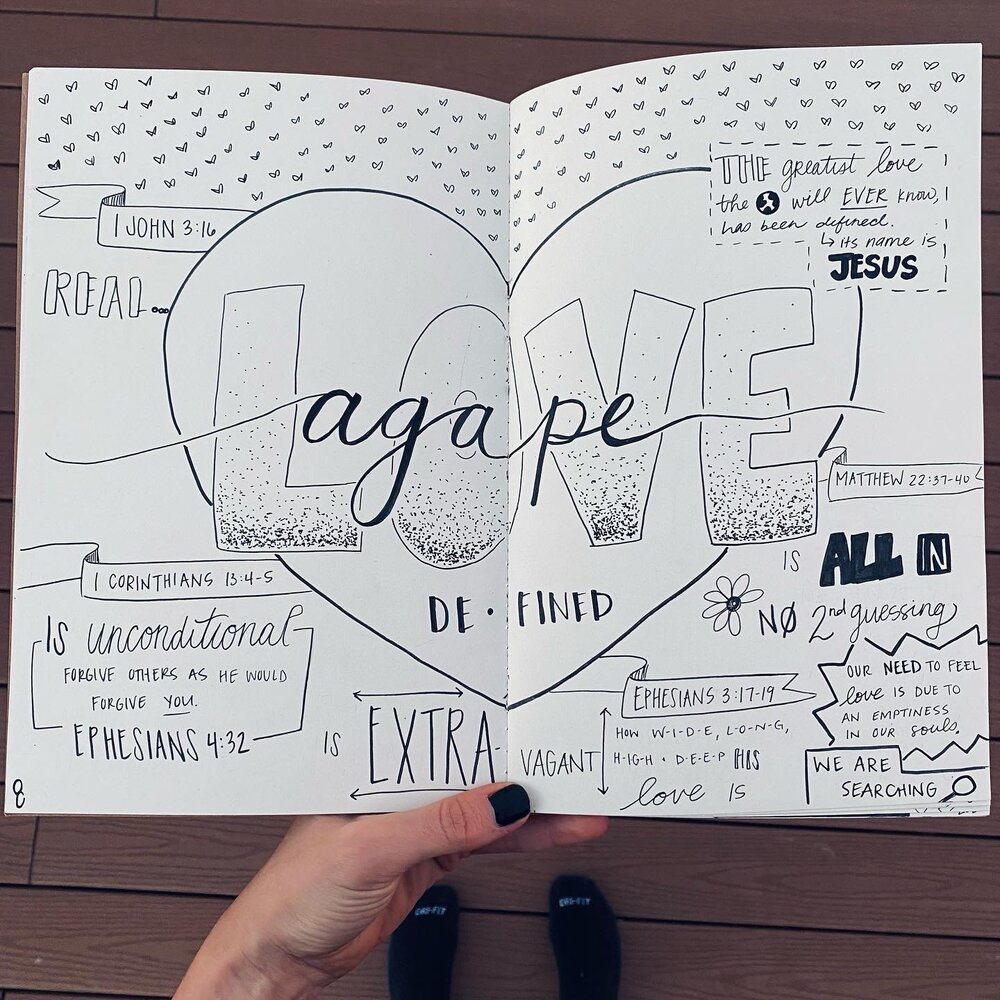 1 JOHN 3:16
REAL...
THE greatist love
the will EVER know,
has been defined.
↳ its name is
JESUS
LOVE
agape
DE•FINED
MATTHEW 22:37-40
IS ALL IN
NØ 2nd guessing
1 CORINTHIANS 13:4-5
IS unconditional
FORGIVE OTHERS AS HE WOULD
FORGIVE YOU.
EPHESIANS 4:32
IS EXTRA-VAGANT
EPHESIANS 3:17-19
HOW W-I-D-E, L-O-N-G,
H-IG-H • D-E-E-P HIS
love IS
OUR NEED TO FEEL
love IS DUE TO
AN EMPTINESS
IN OUR souls.
WE ARE
SEARCHING
8